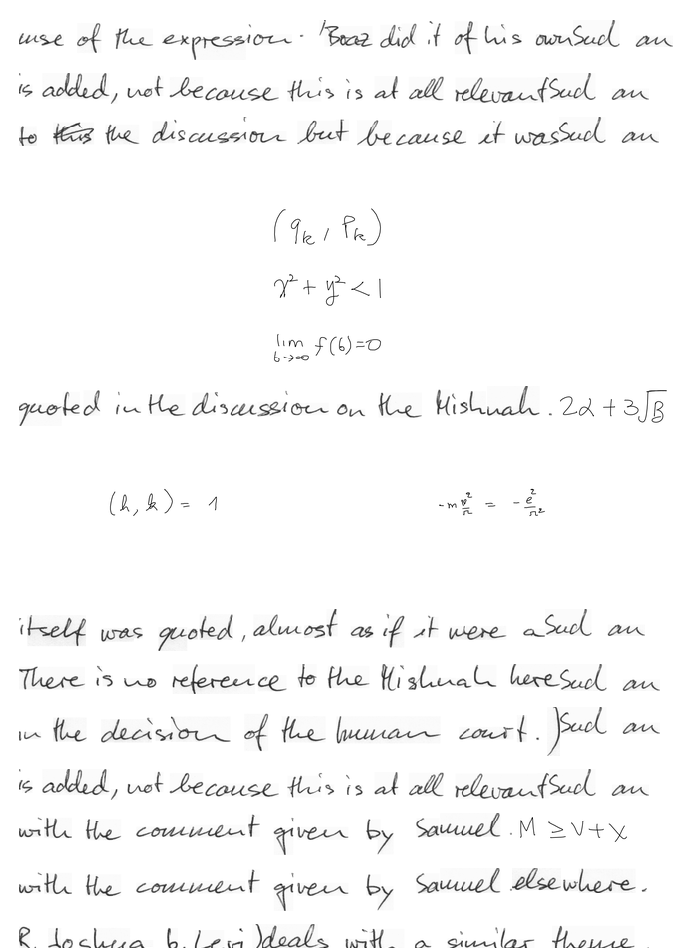 use of the expression. 'Boaz did it of his own Sud an
is added, not because this is at all relevant Sud an
to this the discussion but because it was Sud an
(q_k, P_k)
x² + y² < 1
lim_{b→∞} f(b) = 0
quoted in the discussion on the Mishnah. 2α + 3√B
(h, k) = 1
-m v²/r = - e²/r²
itself was quoted, almost as if it were a Sud an
There is no reference to the Mishnah here Sud an
in the decision of the human court.) Sud an
is added, not because this is at all relevant Sud an
with the comment given by Samuel. M ≥ V + X
with the comment given by Samuel elsewhere.
R. Joshua b. Levi) deals with a similar theme.